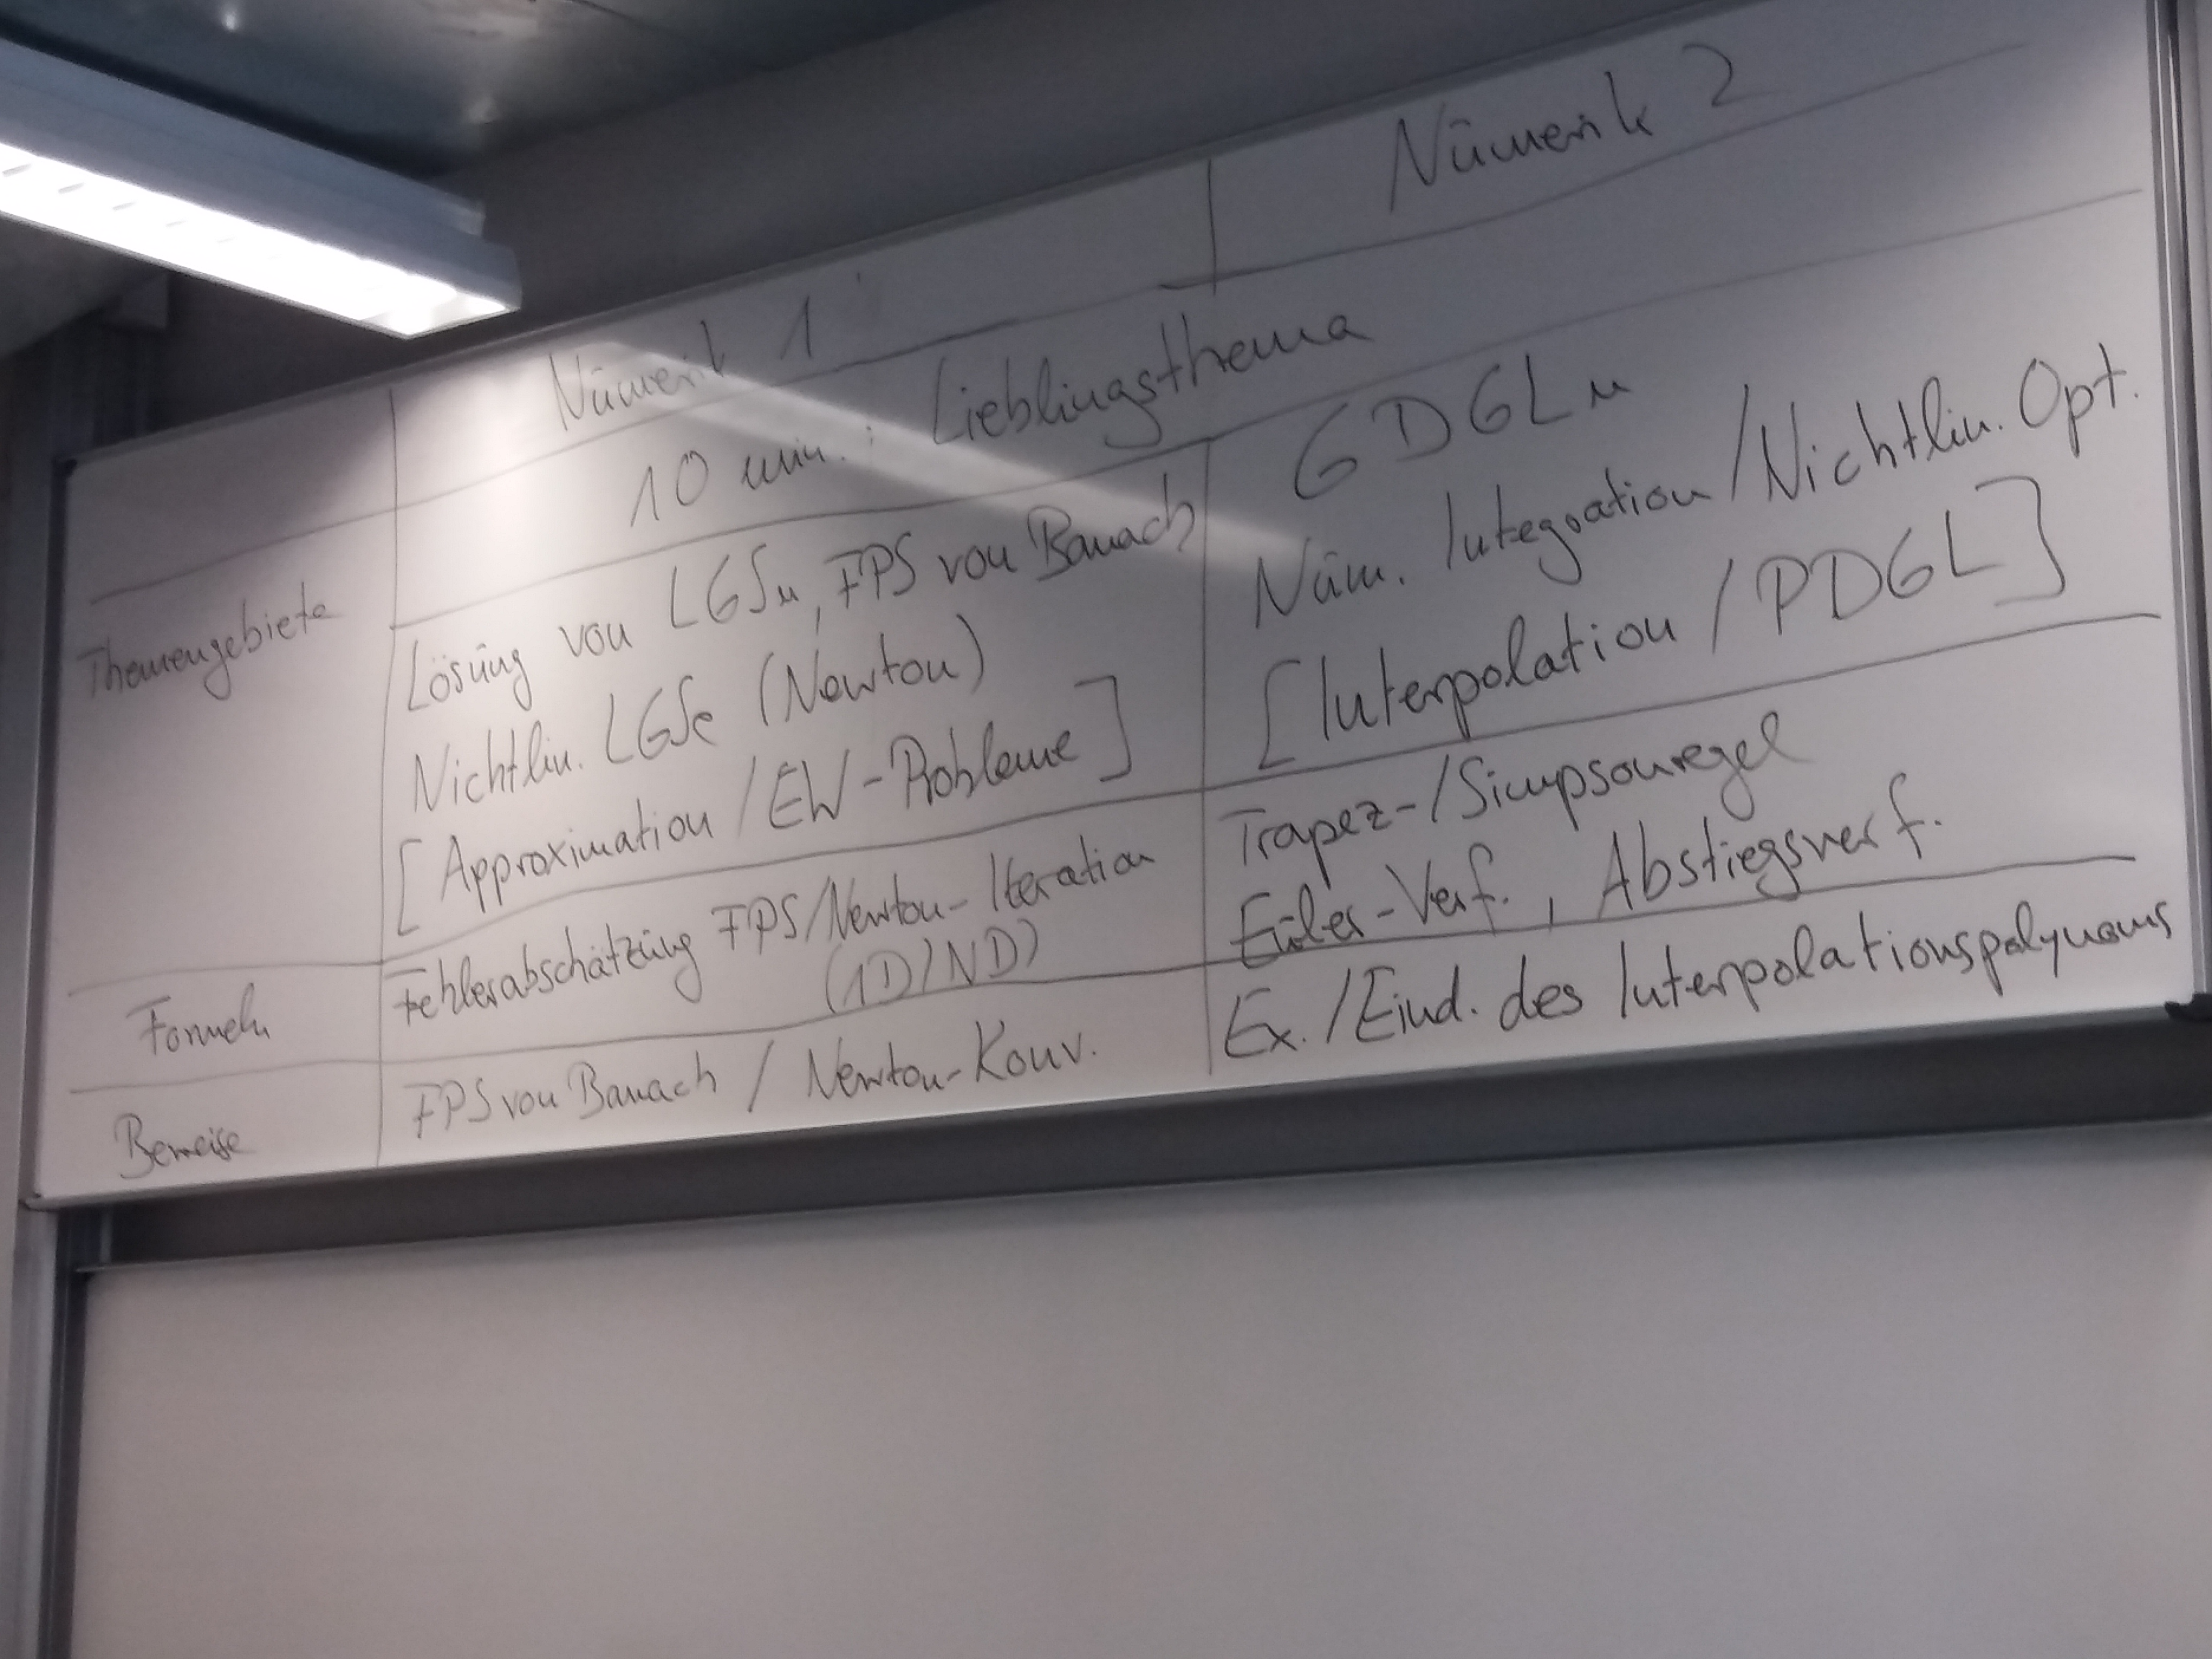 Numerik 1
Numerik 2
10 min.: Lieblingsthema
Themengebiete
Lösung von LGSn, FPS von Banach
Nichtlin. LGSe (Newton)
[Approximation / EW-Probleme]
GDGLn
Num. Integration / Nichtlin. Opt.
[Interpolation / PDGL]
Formeln
Fehlerabschätzung FPS/Newton-Iteration
(1D/ND)
Trapez-/Simpsonregel
Euler-Verf., Abstiegsverf.
Beweise
FPS von Banach / Newton-Konv.
Ex./Eind. des Interpolationspolynoms